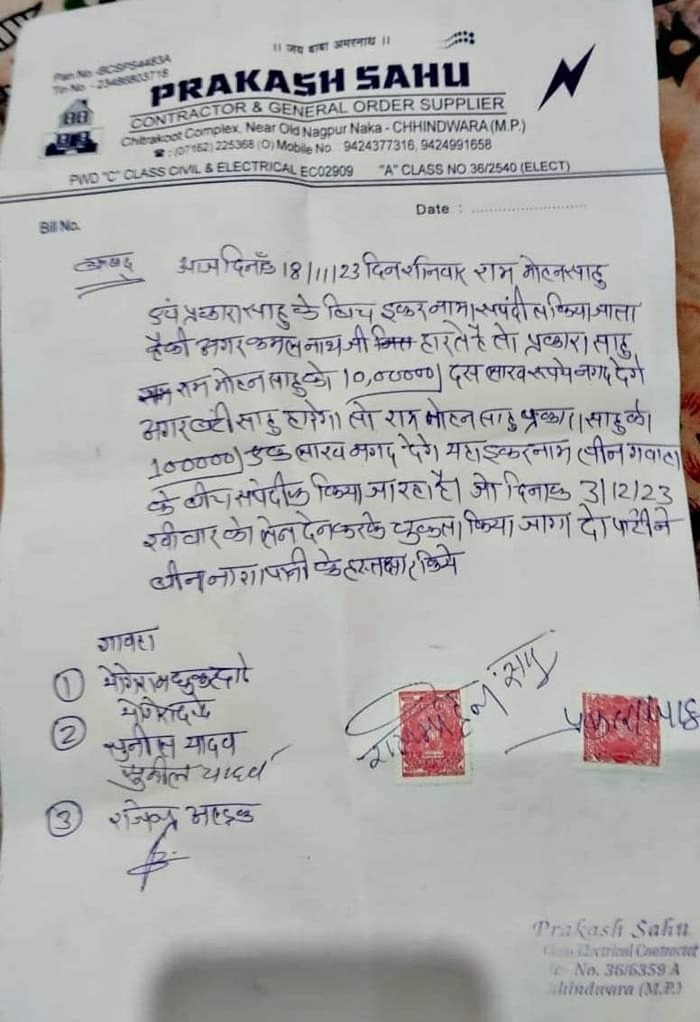 ॥ जय बाबा अमरनाथ ॥
Pan No -BCSPS4483A
Tin No - 23486803718
PRAKASH SAHU
CONTRACTOR & GENERAL ORDER SUPPLIER
Chitrakoot Complex, Near Old Nagpur Naka - CHHINDWARA (M.P.)
☎ : (07162) 225368 (O) Mobile No. 9424377316, 9424991658
PWD "C" CLASS CIVIL & ELECTRICAL EC02909 "A" CLASS NO.36/2540 (ELECT)
Date : ..............................
Bill No.
आज दिनाँक 18/11/23 दिन शनिवार राम मोहन साहु
एवं प्रकाश साहु के बिच इकरनामा संपंदीत किया जाता
हैकी अगर कमलनाथ जी हारते है तो प्रकाश साहु
राम मोहन साहु को 10,00000/ दस लाख रूपये नगद देगे
अगर बंटी साहु हारेगे तो राम मोहन साहु प्रकाश साहु को
100000/ एक लाख नगद देगे यहा इकरनाम तीन गवाहा
के बीच संपदीक किया जा रहा है। जो दिनाक 3/12/23
रवीवार को लेन देन करके चुकता किया जागा दो पार्टीने
तीन के हस्ताक्षर किये
गावहा
①
②
सुनील यादव
सुनील यादव
③ राजेन्द्र
राममोहन साहु
प्रकाश साहु
Prakash Sahu
Class Electrical Contractor
No. 36/6359 A
hhindwara (M.P.)